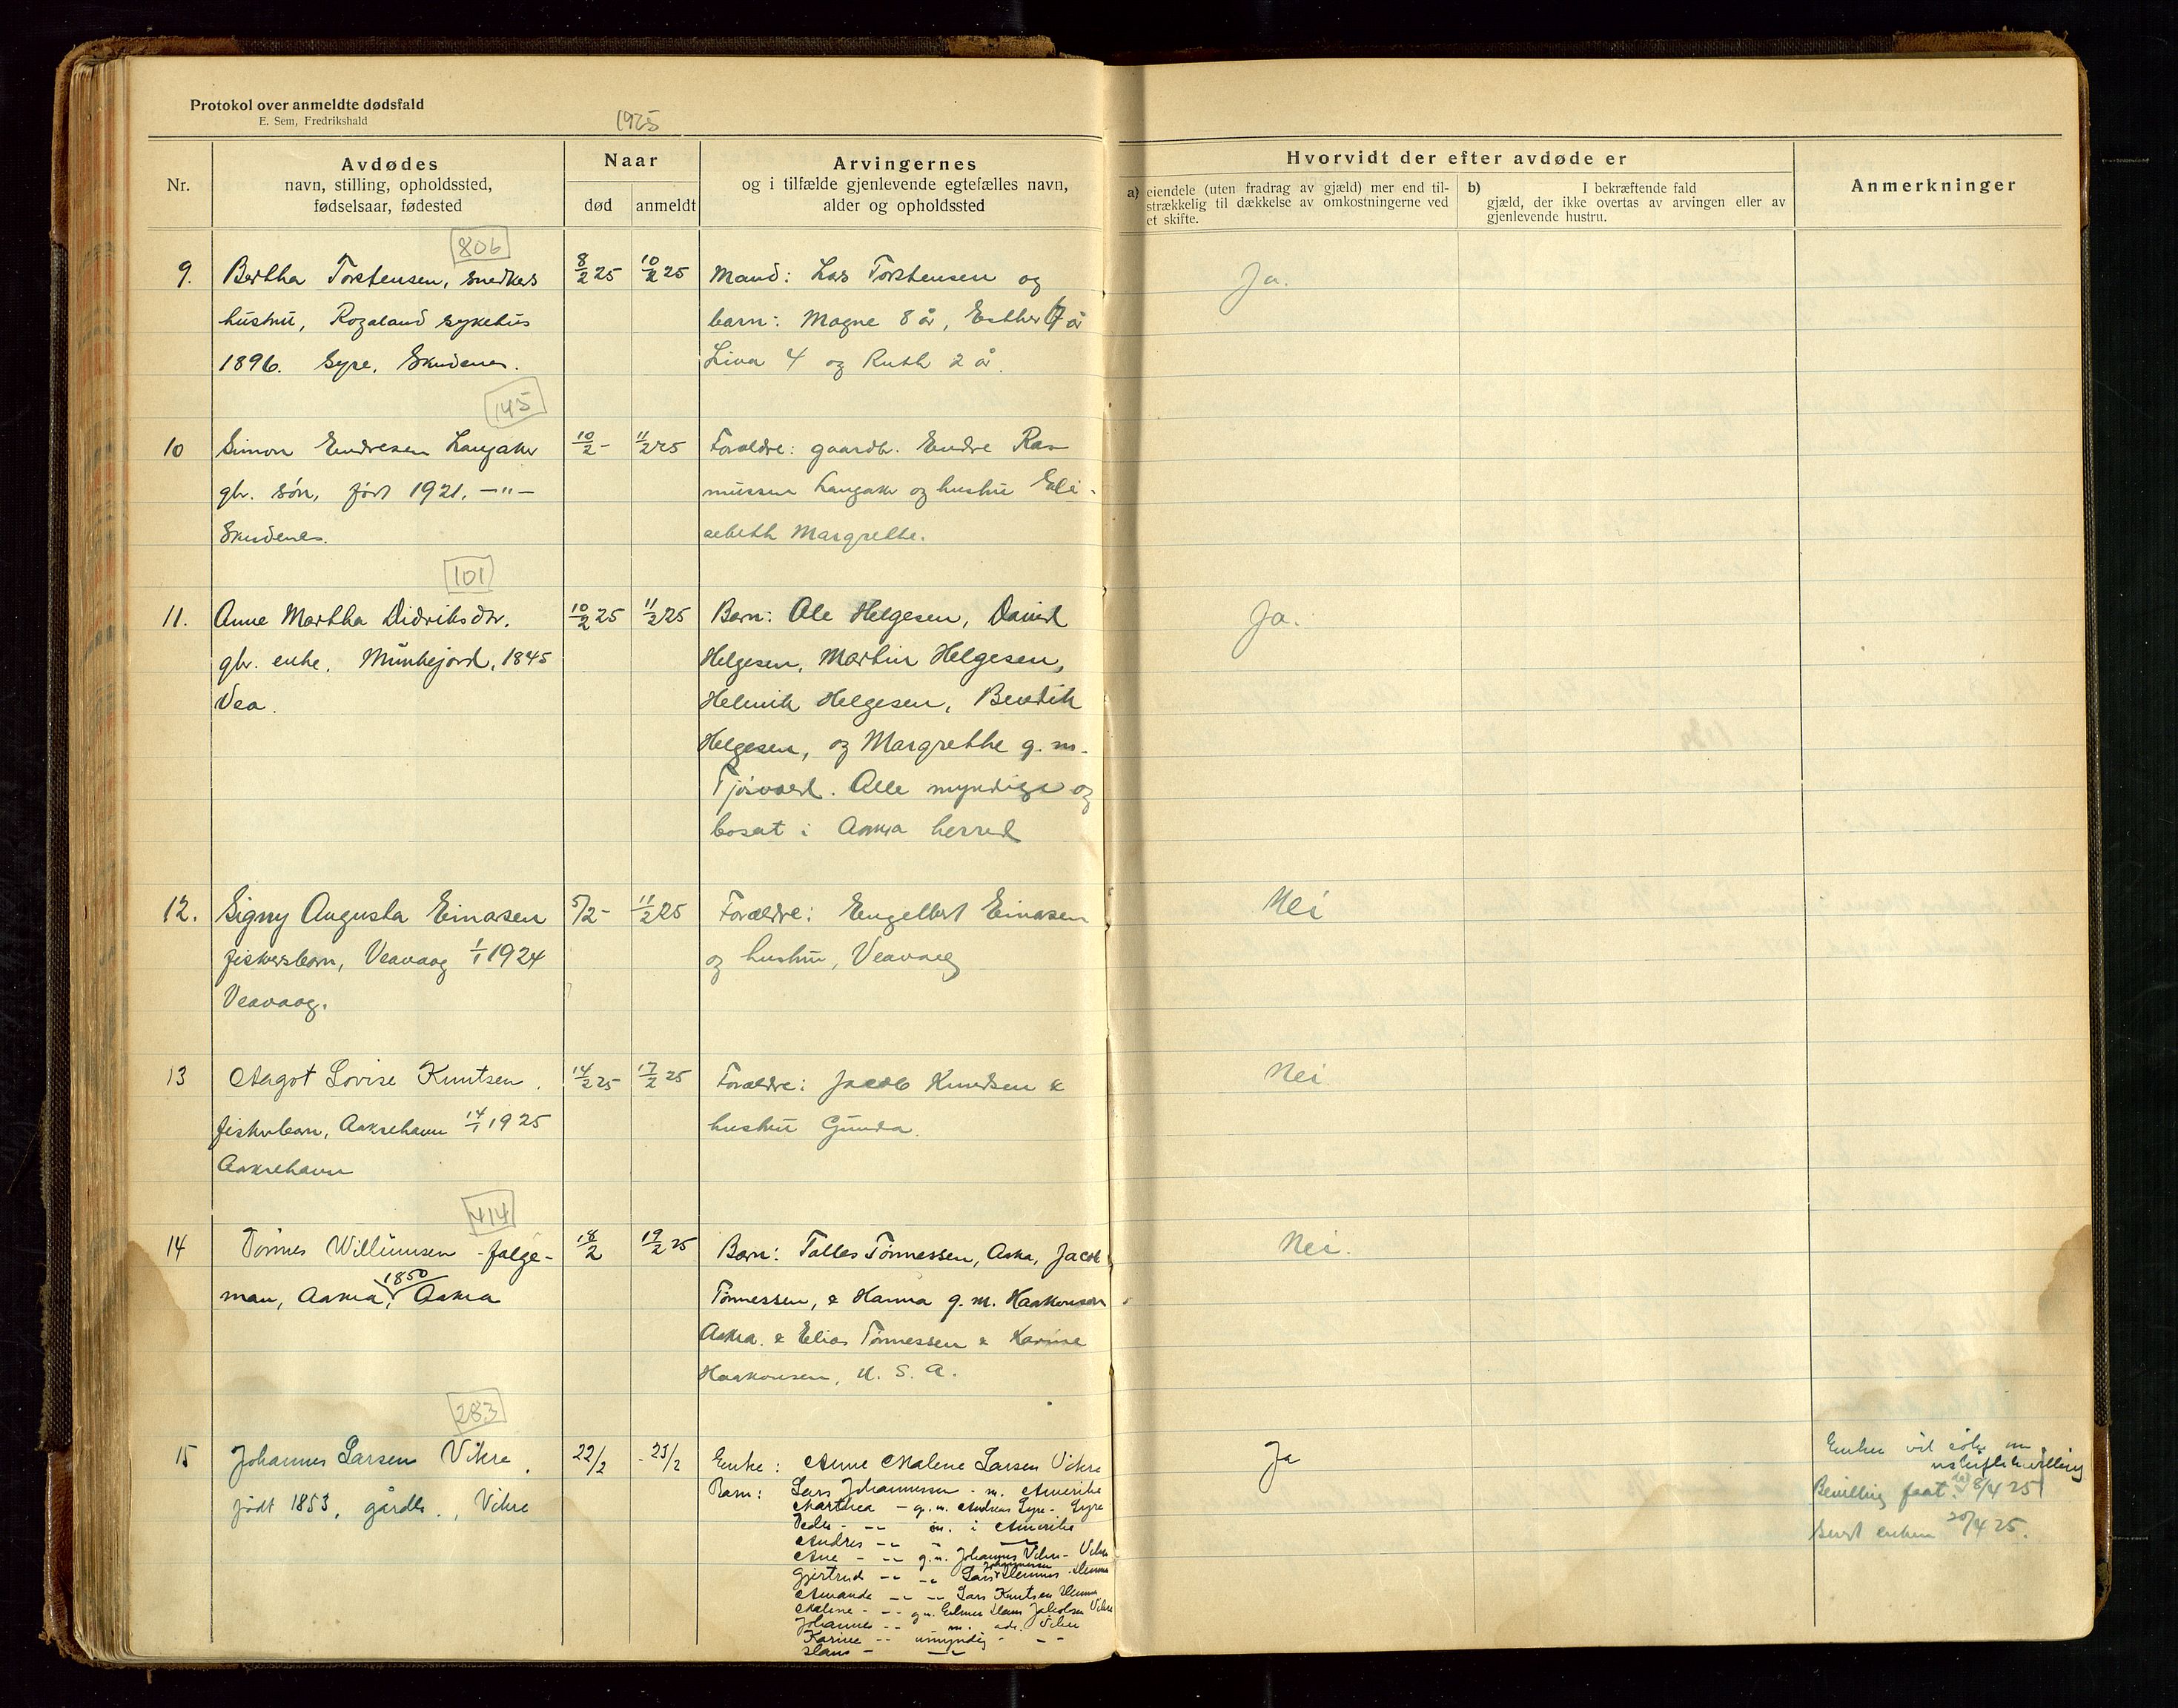 Protokol over anmeldte dødsfald
E. Sem, Fredrikshald
1925
Nr.
Avdødes
navn, stilling, opholdssted,
fødselsaar, fødested
Naar
død
anmeldt
Arvingernes
og i tilfælde gjenlevende egtefælles navn,
alder og opholdssted
Hvorvidt der efter avdøde er
a) eiendele (uten fradrag av gjæld) mer end til-
strækkelig til dækkelse av omkostningerne ved
et skifte.
b) I bekræftende fald
gjæld, der ikke overtas av arvingen eller av
gjenlevende hustru.
Anmerkninger
806
9. Bertha Torstensen, snedkers
hustru, Rogaland sykehus
1896. Syre, Skudenes.
8/2 25
10/2 25
Mand: Lars Torstensen og
barn: Magne 8 år, Esther 6 år
Liva 4 og Ruth 2 år.
Ja.
145
10 Simon Endresen Langaker
gbr. søn, født 1921. -"-
Skudenes.
10/2 -
11/2 25
Forældre: gaardbr. Endre Ras-
mussen Langaker og hustru Eli-
sebeth Margrethe.
101
11. Anne Martha Didriksdtr.
gbr. enke. Munkejord, 1845
Vea.
10/2 25
11/2 25
Barn: Ole Helgesen, David
Helgesen, Martin Helgesen,
Helmik Helgesen, Bendik
Helgesen, og Margrethe g. m.
Tjøsvold. Alle myndige og
bosat i Aakra herred
Ja.
12. Signy Augusta Einarsen
fiskersbarn, Veavaag 1/1 1924
Veavaag.
5/2 -
11/2 25
Forældre: Engelbert Einarsen
og hustru, Veavaag
Nei
13 Aagot Lovise Knutsen.
fiskerbarn, Aakrehavn 14/1 1925
Aakrehavn
14/2 25
17/2 25
Forældre: Jacob Knudsen &
hustru Gunda.
Nei.
414
14 Tønnes Willumsen - følge-
1850
man, Aakra, Aakra
18/2
19/2 25
Barn: Talles Tønnessen, Aakra, Jacob
Tønnessen, & Hanna g. m. Haakonsen
Aakra. & Elias Tønnessen & Karine
Haakonsen, U. S. A.
Nei.
283
15 Johannes Larsen Vikre.
født 1853, gårdbr., Vikre
22/2
- 23/2
Enke: Anne Malene Larsen Vikre
Barn: Lars Johannessen - m. Amerika
Marthea - g. m. Andreas Syre - Syre
Peder - -"- m. i Amerika
Andres -"- - -"-
Ane - -"- g. m. Johannes Vikre - Vikre
Johannessen
Gjertrud -"- -"- Lars Hemnes - Hemnes
Amanda -"- -"- Lars Knutsen Hemnes
Malene - -"- g m. Hans Jakobsen Vikre
Johannes -"- m. Vikre
Karine -"- umyndig - -"-
Hans - -"-
Ja
Enken vil søke om
uskiftebevilling
Bevilling faat. 8/4 25
Sendt enken 20/4 25.